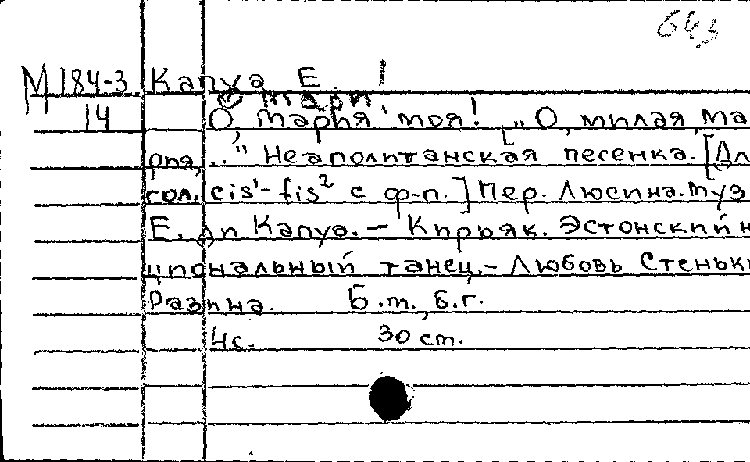 643
М 184-3 Капуа Е. !
О Мари!
14 О, Мария моя! [„О, милая Ма
рия,..." Неаполитанская песенка. [Дл
гол. cis¹-fis² с ф-п.] Пер. Люсина. Муз
Е. ди Капуа. – Кирьяк. Эстонский н
циональный танец. – Любовь Стеньки
Разина. Б.т., б.г.
4с. 30 ст.